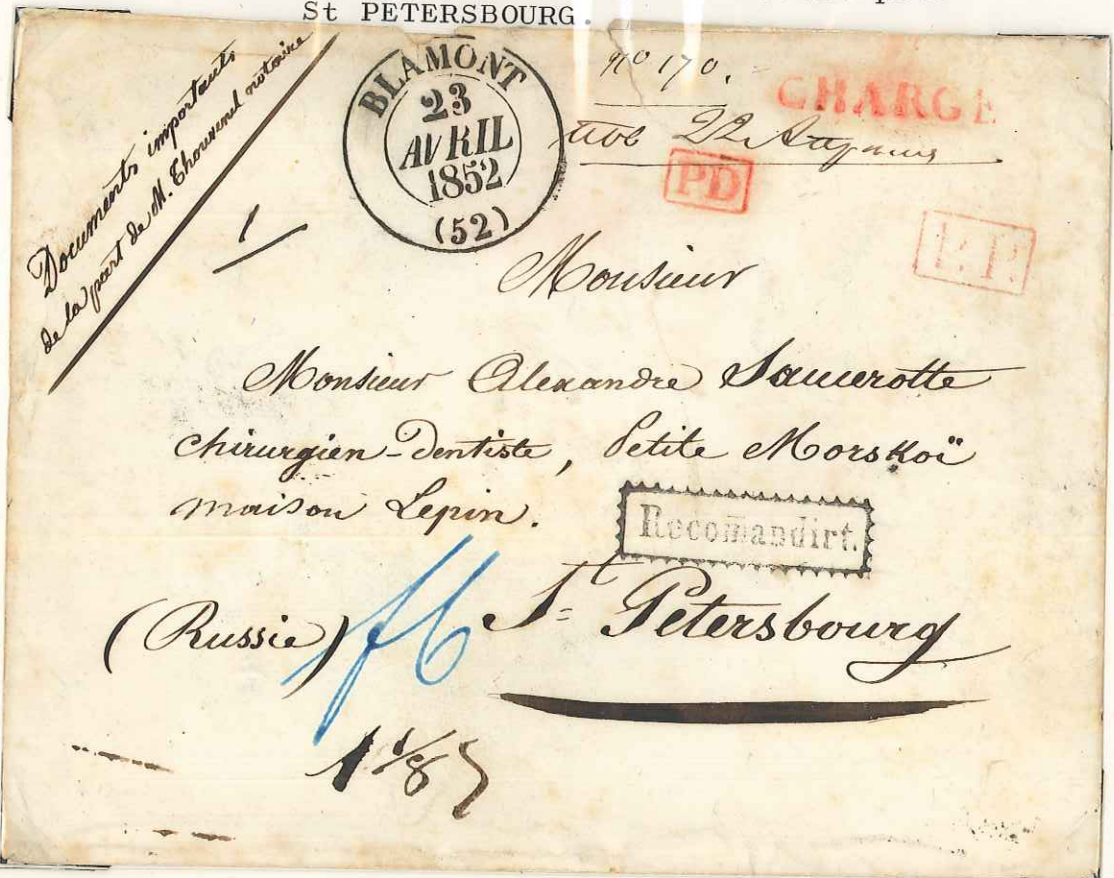 St PETERSBOURG.
Documents importants
de la part de M. Thouvenel notaire
BLAMONT
23
AVRIL
1852
(52)
No 170.
CHARGE
22
PD
P.P.
1
Monsieur
Monsieur Alexandre Saucerotte
chirurgien-Dentiste, Petite Morskoï
maison Lepin.
Recomandirt.
(Russie) St Petersbourg
f6